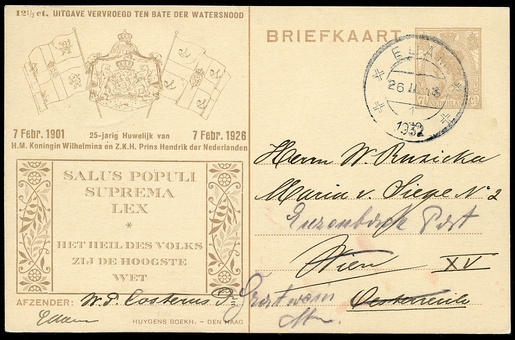 12½ ct. UITGAVE VERVROEGD TEN BATE DER WATERSNOOD
7 Febr. 1901
25-jarig Huwelijk van
7 Febr. 1926
H.M. Koningin Wilhelmina en Z.K.H. Prins Hendrik der Nederlanden
SALUS POPULI
SUPREMA
LEX
*
HET HEIL DES VOLKS
ZIJ DE HOOGSTE
WET
AFZENDER: W. P. Costerus
Edam
HUYGENS BOEKH. – DEN HAAG
BRIEFKAART
EDAM
1932
Herrn W. Ruzicka
Maria v. Siege No 2
Post
Wien XV
Oesterreich